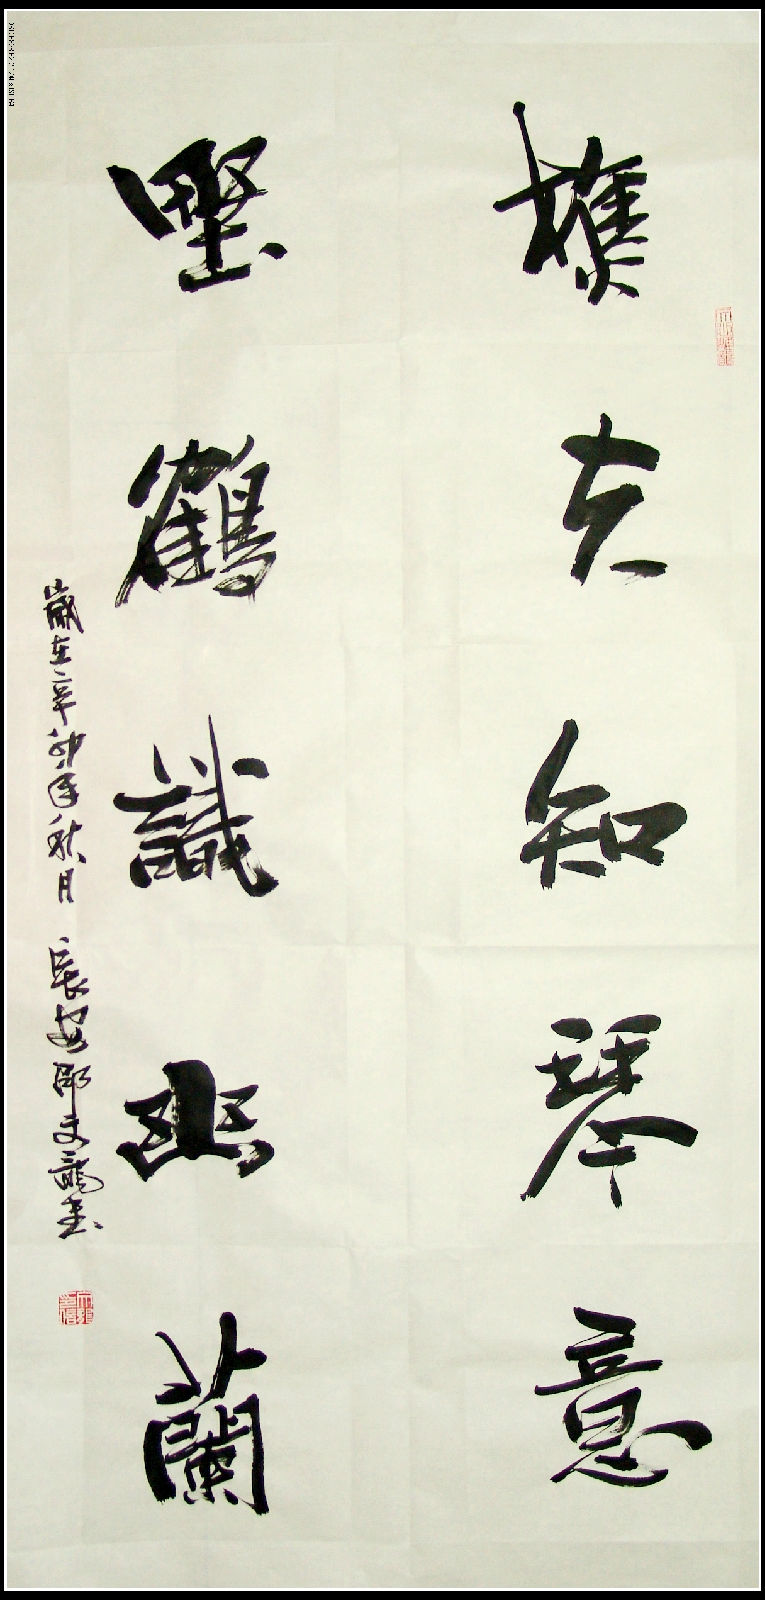 樵夫知琴意
野鶴識幽蘭
歲在辛卯年秋月 長安邵文龍書